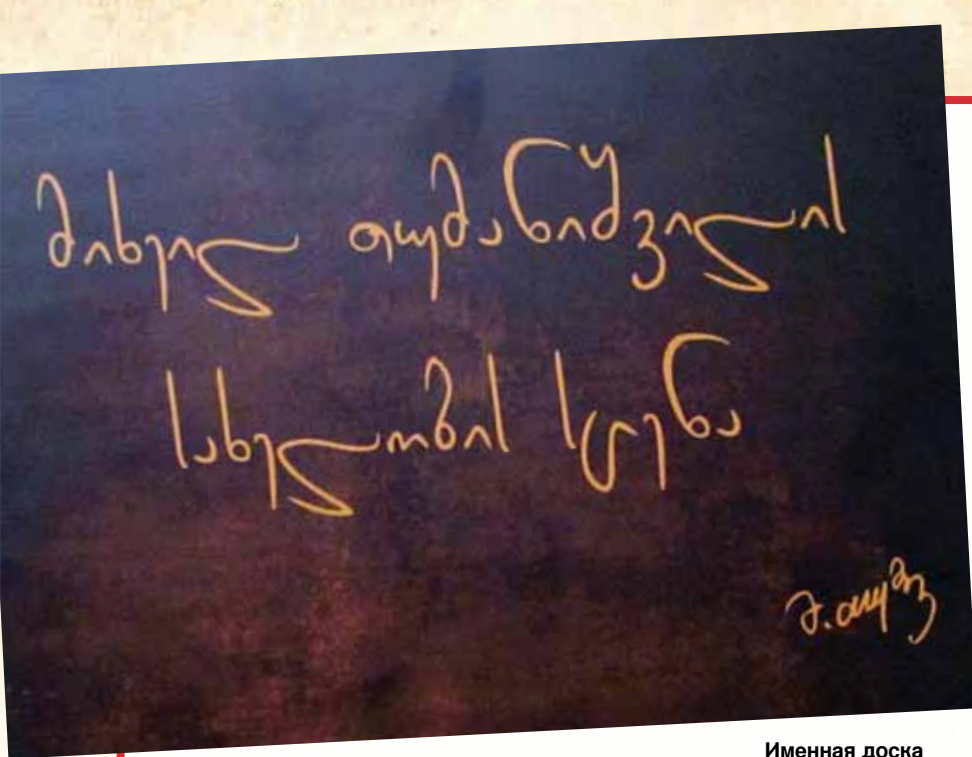 მიხეილ თუმანიშვილის
სახელობის სცენა
Именная доска